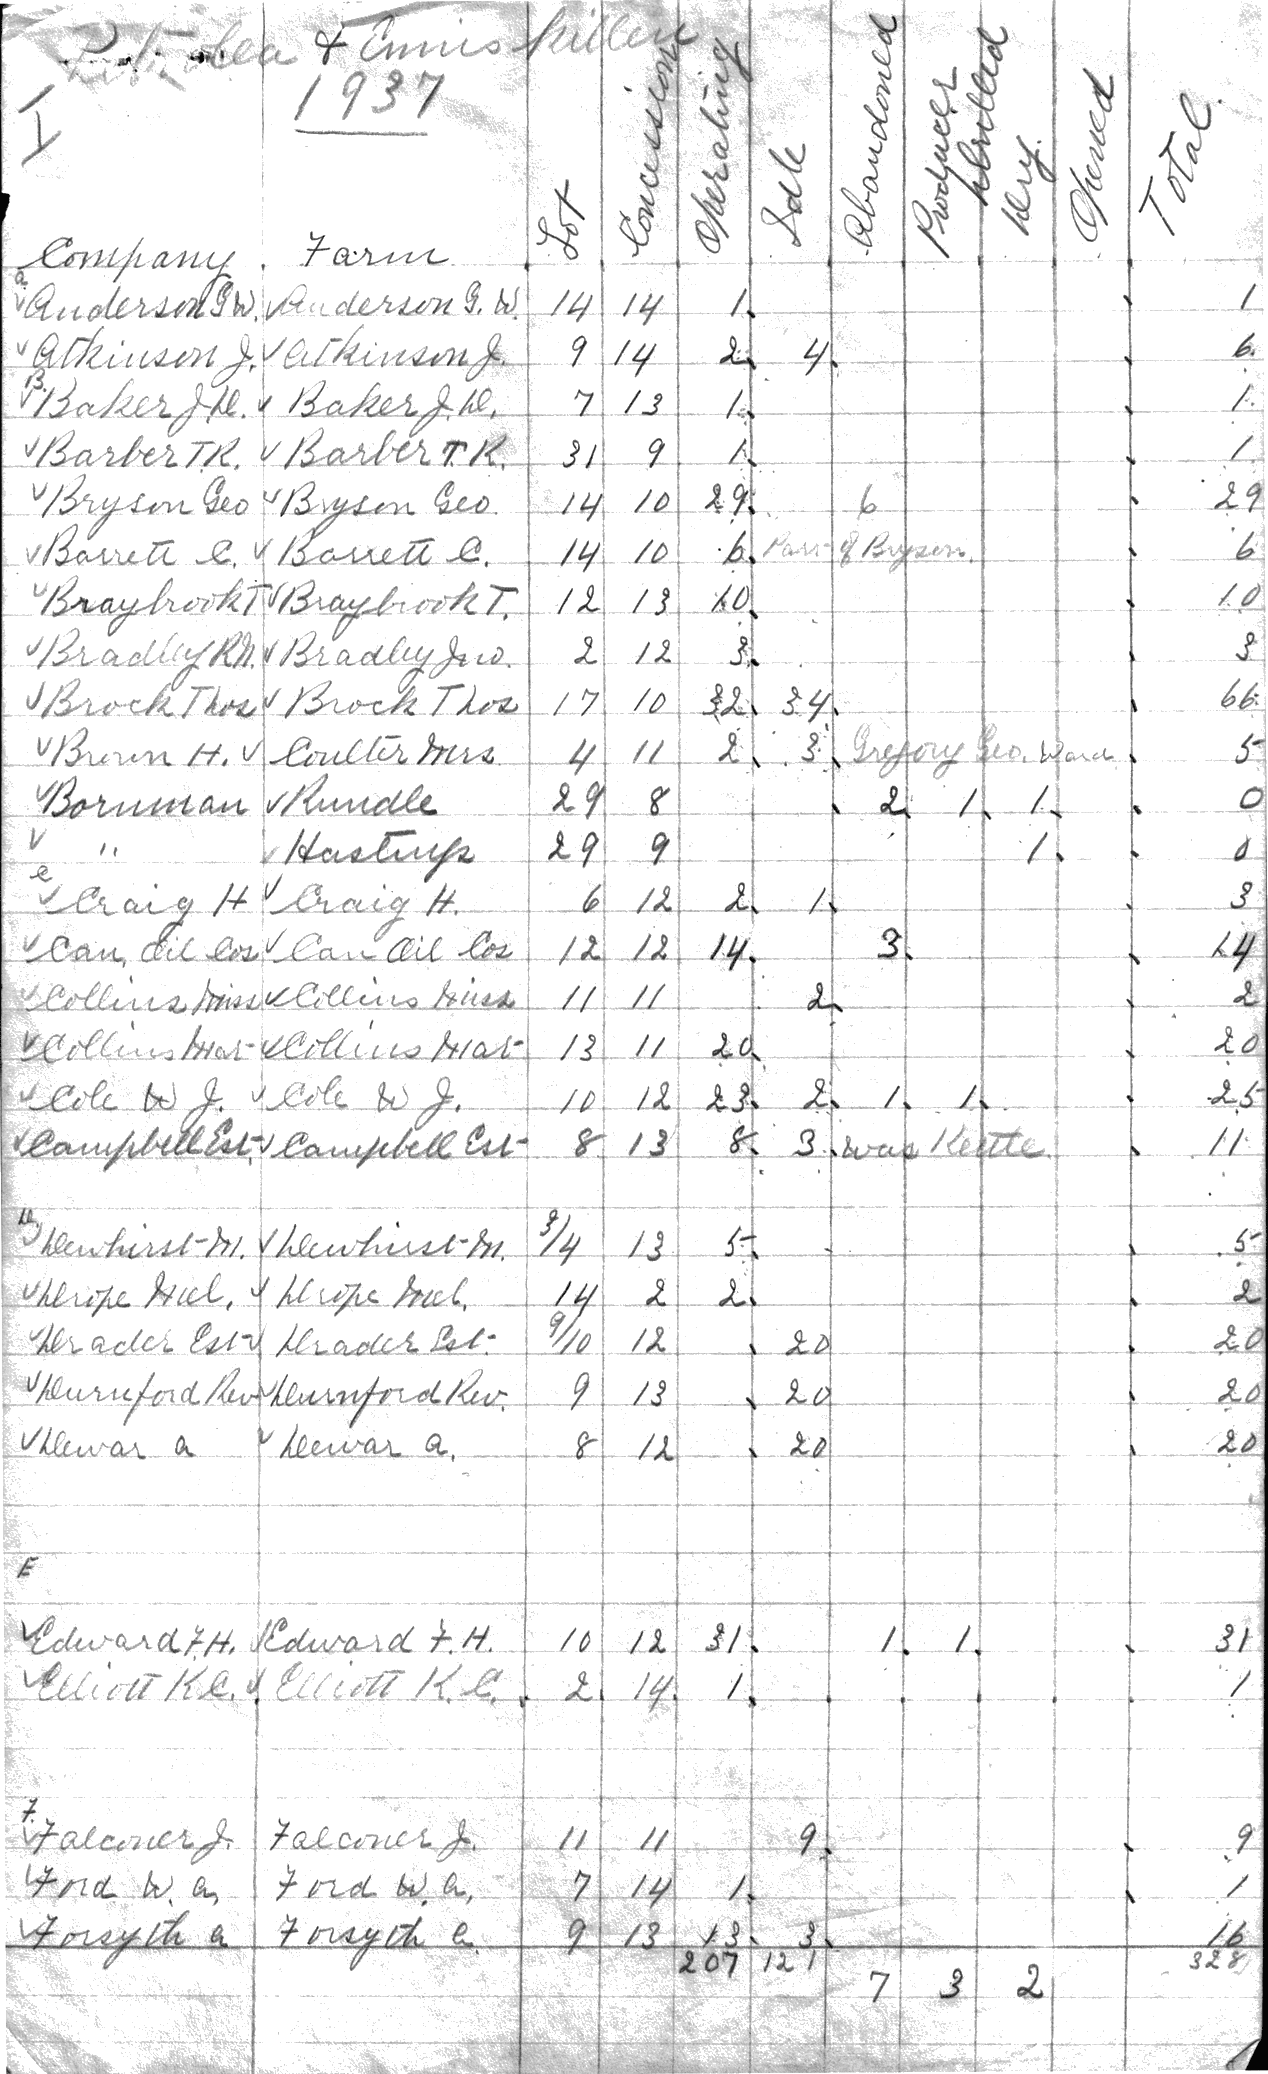 Petrolea & Enniskillen
I 1937
Company Farm Lot Concession Operating Idle Abandoned Producer Drilled Dry Opened Total
a
✓ Anderson G.W. ✓ Anderson G. W. 14 14 1 1
✓ Atkinson J. ✓ Atkinson J. 9 14 2 4 6
B.
✓ Baker J.D. ✓ Baker J.D. 7 13 1 1
✓ Barber T.R. ✓ Barber T.R. 31 9 1 1
✓ Bryson Geo ✓ Bryson Geo. 14 10 29 6 29
✓ Barrett C. ✓ Barrett C. 14 10 6 Part of Bryson. 6
✓ Braybrook T ✓ Braybrook T. 12 13 10 10
✓ Bradley R.N. ✓ Bradley Jno. 2 12 3 3
✓ Brock Thos ✓ Brock Thos 17 10 32 34 66
✓ Brown H. ✓ Coulter Mrs 4 11 2 3 Gregory Geo. Ward 5
✓ Bornman ✓ Rundle 29 8 2 1 1 0
✓ " ✓ Hastings 29 9 1 0
C
✓ Craig H ✓ Craig H. 6 12 2 1 3
✓ Can. Oil Cos ✓ Can Oil Cos 12 12 14 3 14
✓ Collins Miss ✓ Collins Miss 11 11 2 2
✓ Collins Mat ✓ Collins Mat 13 11 20 20
✓ Cole W J. ✓ Cole W J. 10 12 23 2 1 1 25
✓ Campbell Est. ✓ Campbell Est 8 13 8 3 was Kettle 11
D
✓ Dewhirst M. ✓ Dewhirst M. 3/4 13 5 5
✓ Drope Mel. ✓ Drope Mel. 14 2 2 2
✓ Drader Est ✓ Drader Est. 9/10 12 20 20
✓ Durnford Rev ✓ Durnford Rev. 9 13 20 20
✓ Dewar a ✓ Dewar a. 8 12 20 20
E
✓ Edward F.H. ✓ Edward F. H. 10 12 31 1 1 31
✓ Elliott K.C. ✓ Elliott K. C. 2 14 1 1
F.
✓ Falconer J. Falconer J. 11 11 9 9
✓ Ford W. a. Ford W. a. 7 14 1 1
✓ Forsyth a Forsyth a. 9 13 13 3 16
207 121 328
7 3 2